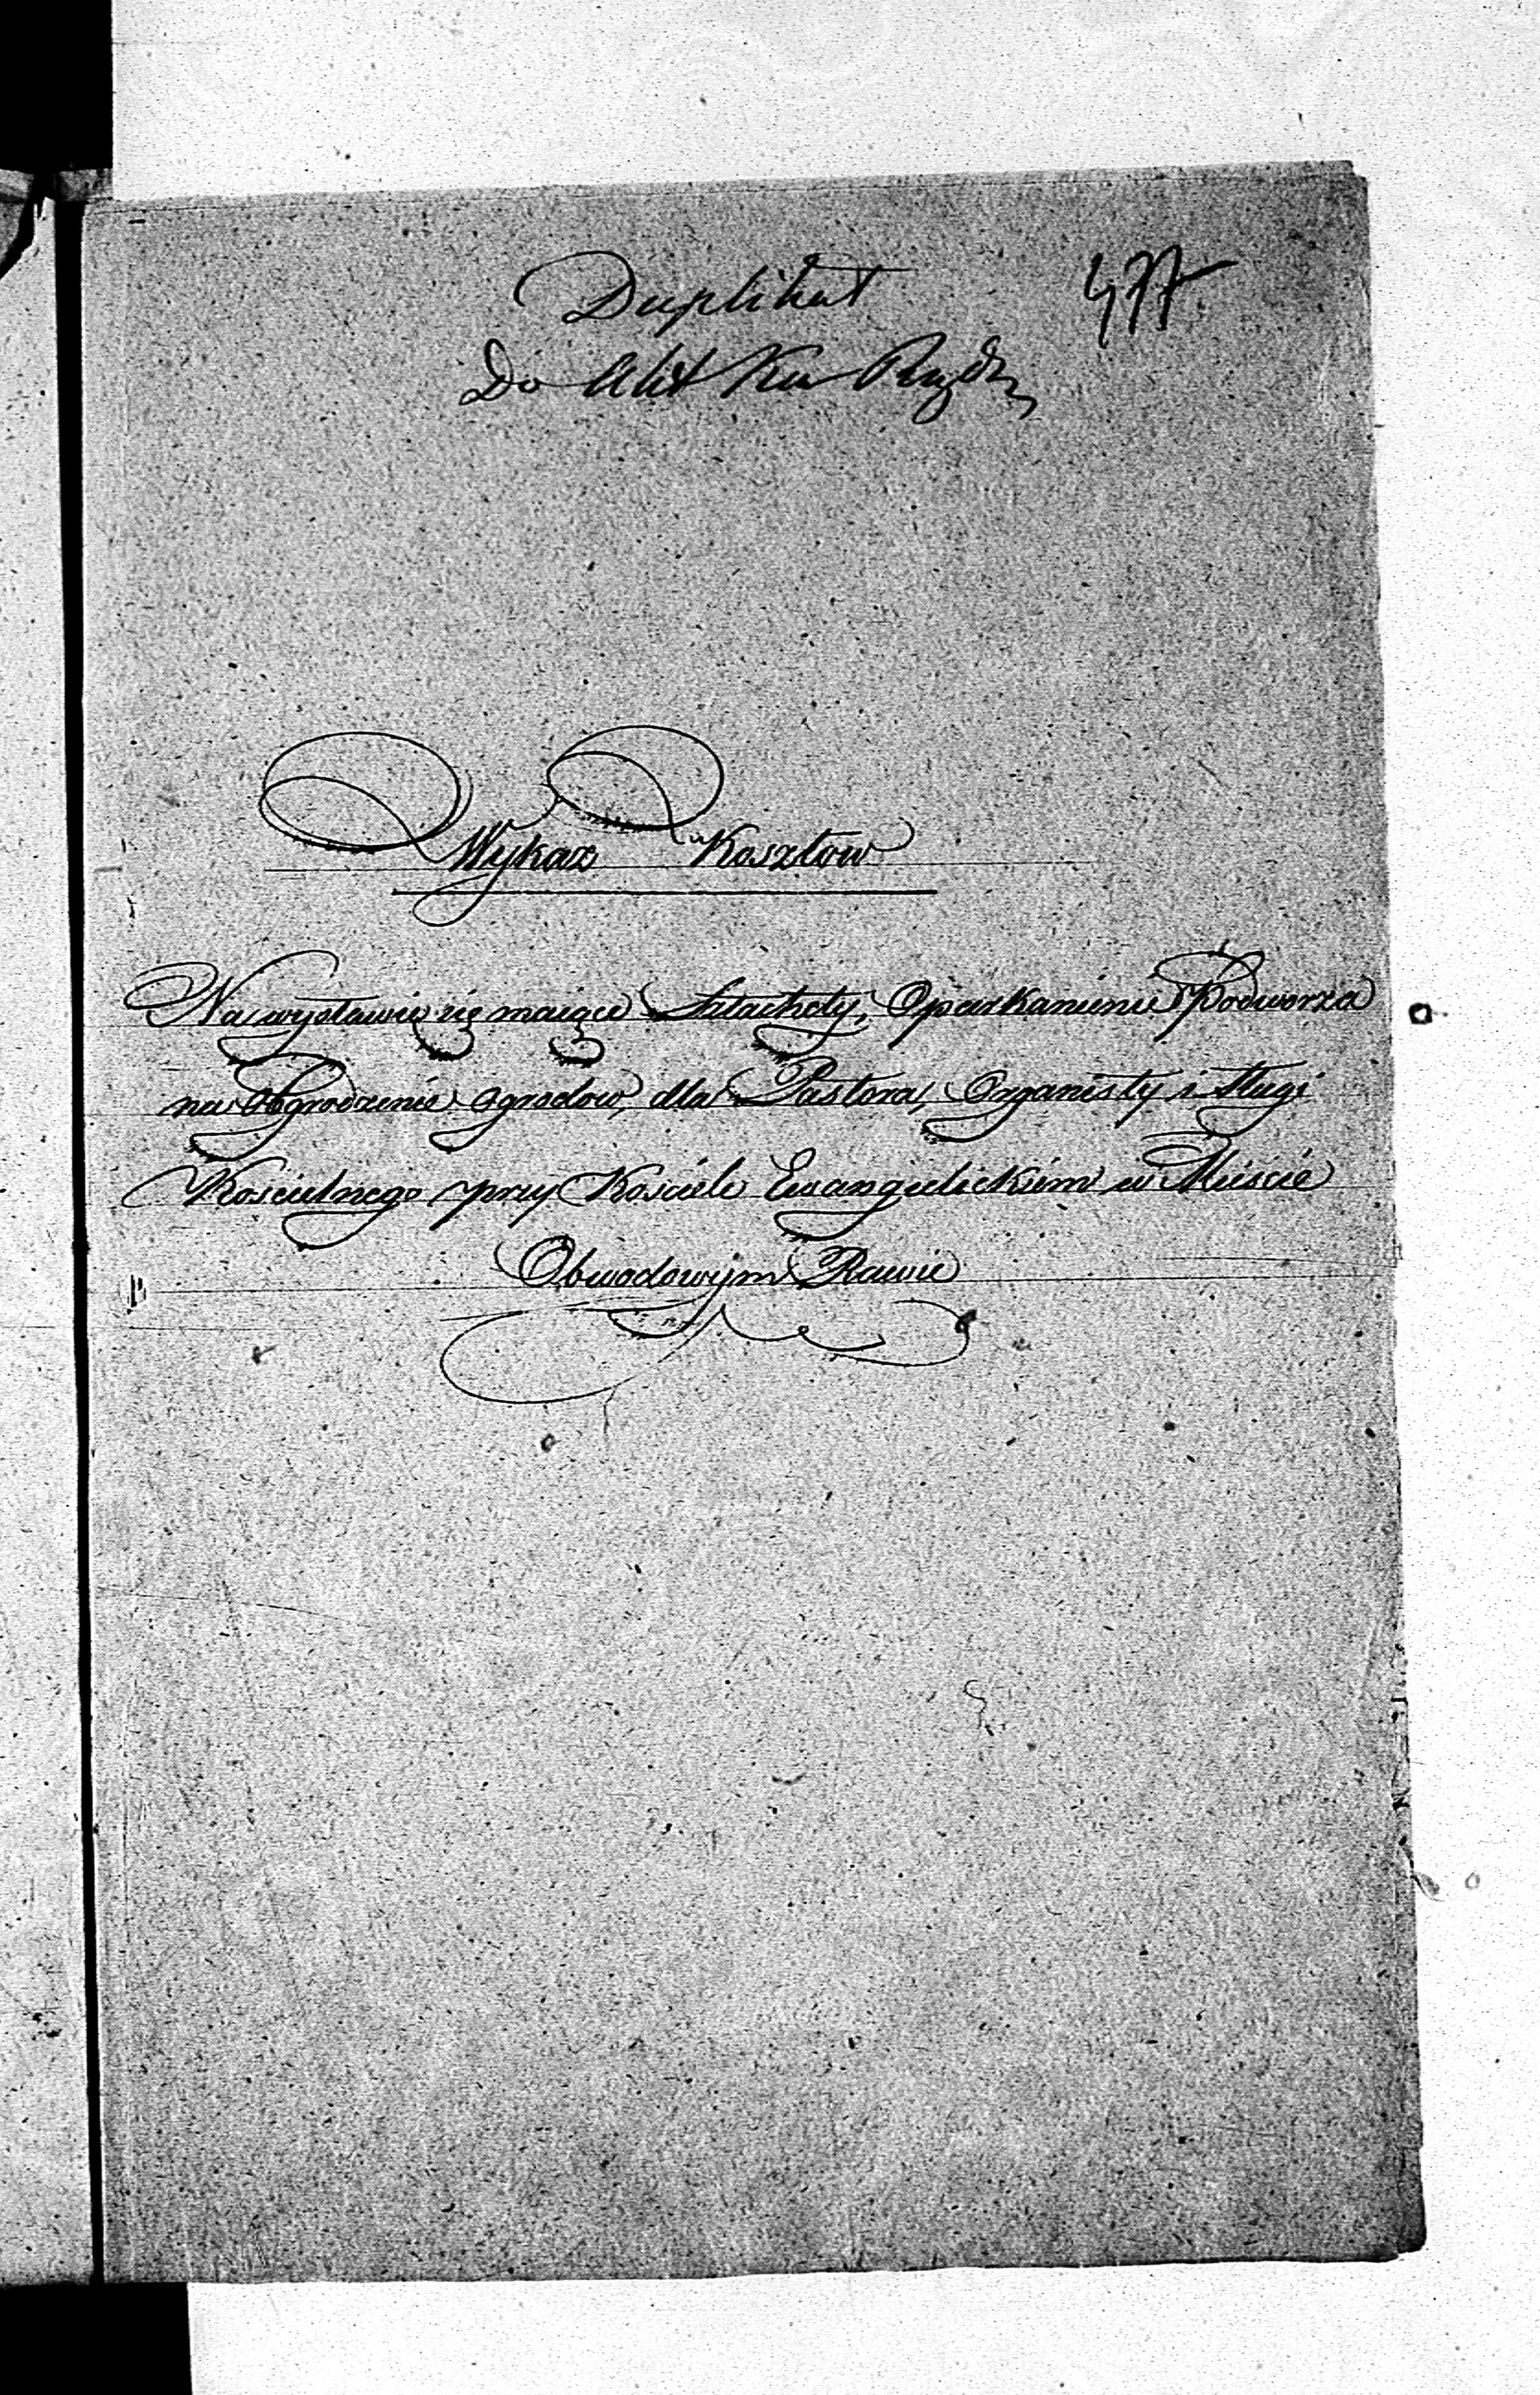 Duplikat 477
Do Akt Kom Rządz
Wykaz Kosztow
Na wystawić się maiące Sztachety, Oparkanienie Podworza
na Obgrodzenie ogrodow, dla Pastora, Organisty i Sługi
Koscielnego przy Kosciele Ewangielickim w Miescie
Obwodowym Rawie